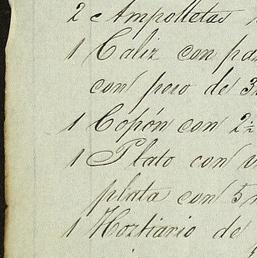 2 Ampolletas
1 Caliz con pa
con peso de 3
1 Copón con 2½
1 Plato con v
plata con 5
1 Hostiario de